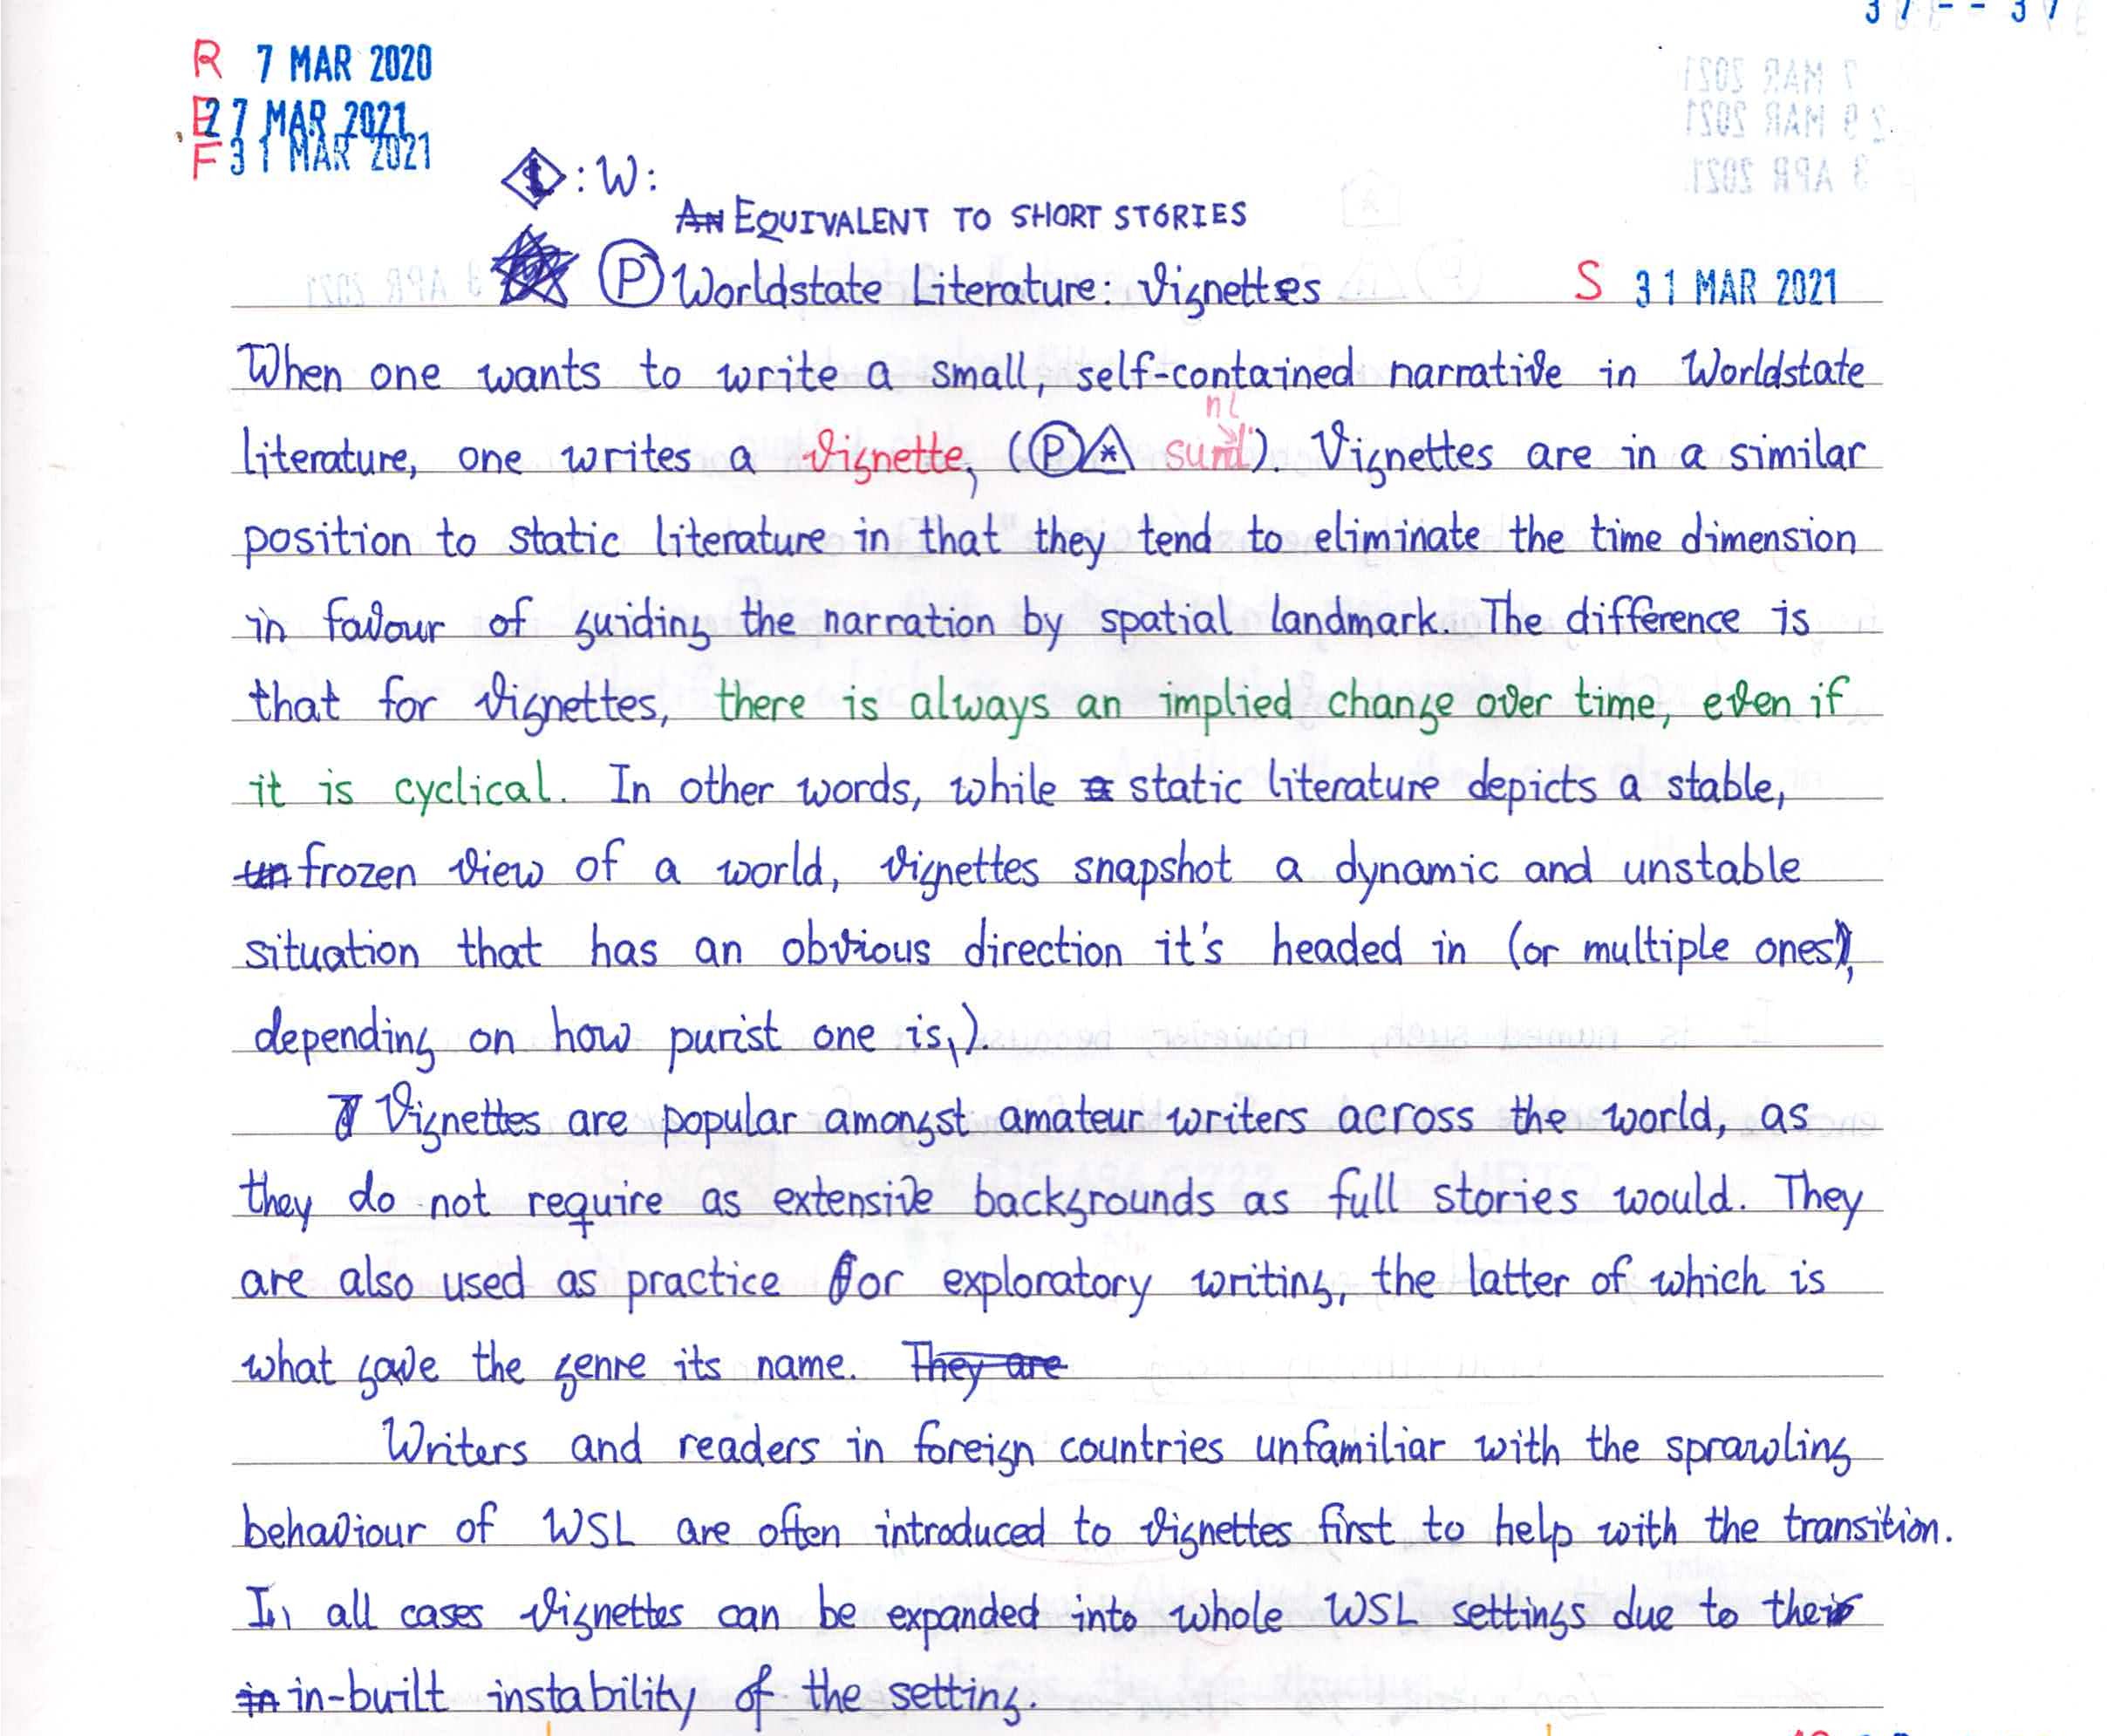 37--37
R 7 MAR 2020
E 27 MAR 2021
F 31 MAR 2021
: W:
AN EQUIVALENT TO SHORT STORIES
Ⓟ Worldstate Literature: Vignettes S 31 MAR 2021
When one wants to write a small, self-contained narrative in Worldstate
nl
literature, one writes a vignette, (Ⓟ). Vignettes are in a similar
position to static literature in that they tend to eliminate the time dimension
in favour of guiding the narration by spatial landmark. The difference is
that for vignettes, there is always an implied change over time, even if
it is cyclical. In other words, while a static literature depicts a stable,
un frozen view of a world, vignettes snapshot a dynamic and unstable
situation that has an obvious direction it's headed in (or multiple ones),
depending on how purist one is,).
Vignettes are popular amongst amateur writers across the world, as
they do not require as extensive backgrounds as full stories would. They
are also used as practice for exploratory writing, the latter of which is
what gave the genre its name. They are
Writers and readers in foreign countries unfamiliar with the sprawling
behaviour of WSL are often introduced to vignettes first to help with the transition.
In all cases vignettes can be expanded into whole WSL settings due to their
in in-built instability of the setting.